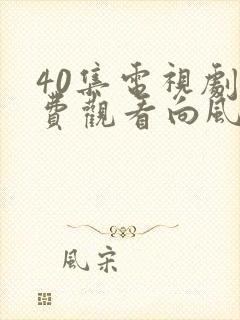 40集電視劇
費觀看向風
風宋